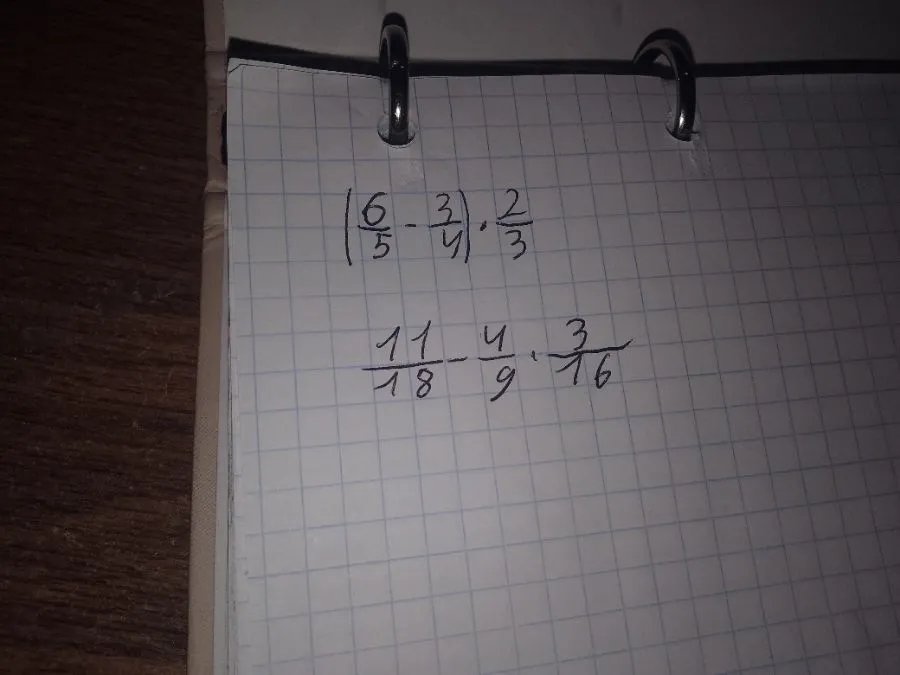 (6/5 - 3/4) · 2/3
11/18 - 4/9 · 3/16